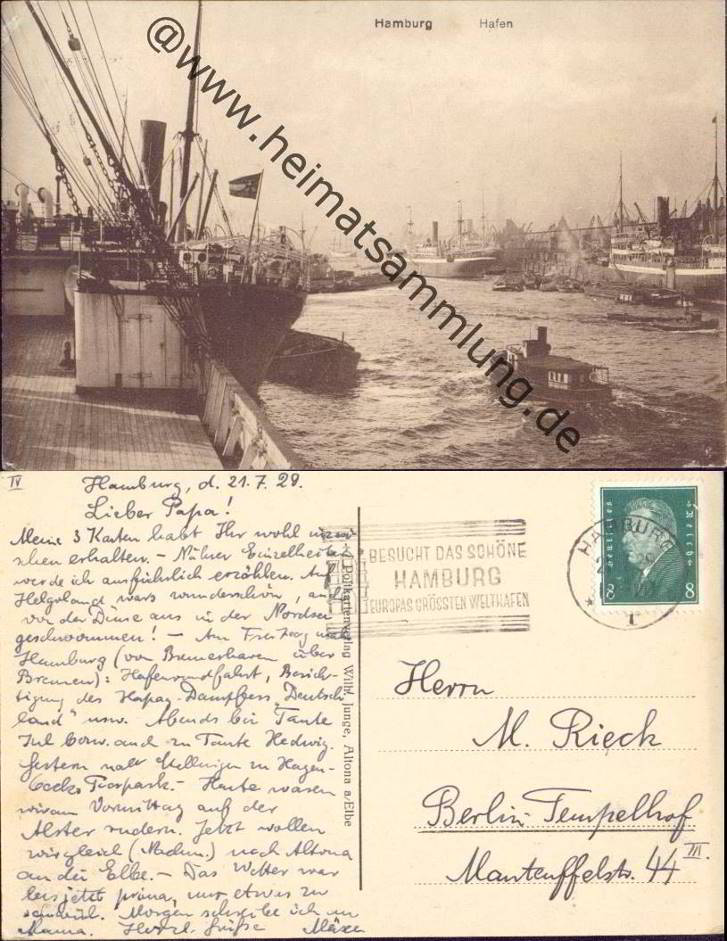 Hamburg Hafen
@www.heimatsammlung.de
IV
Hamburg, d. 21.7.29.
Lieber Papa!
Meine 3 Karten habt Ihr wohl inzwi-
schen erhalten. - Nähere Einzelheiten
werde ich ausführlich erzählen. Auf
Helgoland wars wunderschön, auch
von der Düne aus in der Nordsee
geschwommen! - Am Freitag nach
Hamburg (von Bremerhaven über
Bremen): Hafenrundfahrt, Besich-
tigung des Hapag-Dampfers "Deutsch-
land" usw. Abends bei Tante
Jul bzw. auch zu Tante Hedwig.
Gestern nach Stellingen zu Hagen-
becks Tierpark. - Heute waren
wir am Vormittag auf der
Alster rudern. Jetzt wollen
wir gleich (Nachm.) nach Altona
an die Elbe. - Das Wetter war
bis jetzt prima, nur etwas zu
schwül. Morgen schreibe ich an
Mama. Herzl. Grüße
Postkartenverlag Wilh. Junge, Altona a/Elbe
BESUCHT DAS SCHÖNE
HAMBURG
EUROPAS GRÖSSTEN WELTHAFEN
HAMBURG
1
Deutsches Reich
8 8
Herrn
M. Rieck
Berlin-Tempelhof
Manteuffelstr. 44 III.